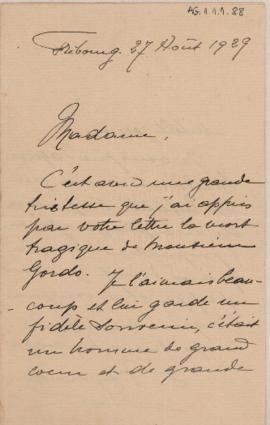 AG.1.1.1.88
Fribourg. 27 Août 1929
Madame,
C'est avec une grande
tristesse que j'ai appris
par votre lettre la mort
tragique de Monsieur
Gordo. Je l'aimais beau-
-coup et lui garde un
fidèle souvenir, c'était
un homme de grand
coeur et de grande